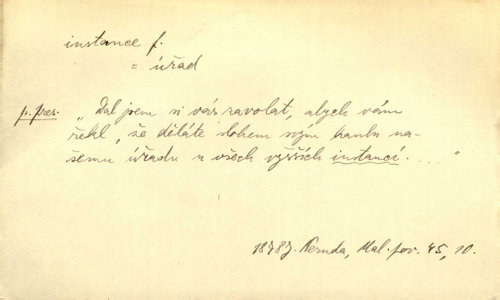 instance f.
= úřad
p. přes. „Dal jsem si vás zavolat, abych vám
řekl, že děláte slohem svým hanbu na-
šemu úřadu u všech vyšších instancí. . . . “
1878 J. Neruda, Mal. pov. 45, 10.